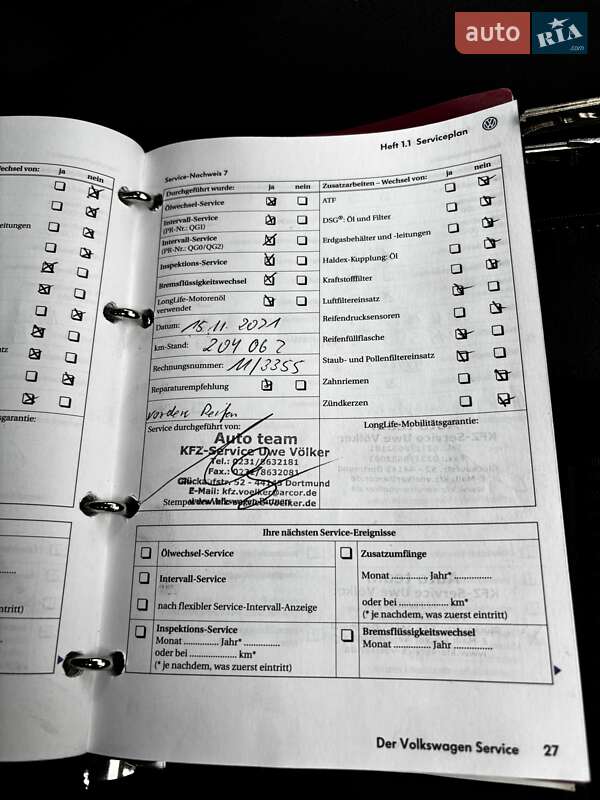 auto RIA.com
Heft 1.1 Serviceplan
Wechsel von: ja nein
Service-Nachweis 7
Durchgeführt wurde: ja nein
Ölwechsel-Service
Intervall-Service
(PR-Nr.: QG1)
Intervall-Service
(PR-Nr.: QG0/QG2)
Inspektions-Service
Bremsflüssigkeitswechsel
LongLife-Motorenöl
verwendet
Datum: 15.11.2021
km-Stand: 204 062
Rechnungsnummer: 11/3355
Reparaturempfehlung
vorden Reifen
Service durchgeführt von:
Auto team
KFZ-Service Uwe Völker
Tel.: 0231/8632181
Fax.: 0231/8632081
Glückaufstr. 52 - 44143 Dortmund
E-Mail: kfz.voelker@arcor.de
Zusatzarbeiten – Wechsel von: ja nein
ATF
DSG®: Öl und Filter
Erdgasbehälter und -leitungen
Haldex-Kupplung: Öl
Kraftstofffilter
Luftfiltereinsatz
Reifendrucksensoren
Reifenfüllflasche
Staub- und Pollenfiltereinsatz
Zahnriemen
Zündkerzen
LongLife-Mobilitätsgarantie:
Ihre nächsten Service-Ereignisse
Ölwechsel-Service
Intervall-Service
nach flexibler Service-Intervall-Anzeige
Inspektions-Service
Monat ............... Jahr* ...............
oder bei .................... km*
(* je nachdem, was zuerst eintritt)
Zusatzumfänge
Monat ............... Jahr* ...............
oder bei .................... km*
(* je nachdem, was zuerst eintritt)
Bremsflüssigkeitswechsel
Monat ............... Jahr ...............
Der Volkswagen Service 27